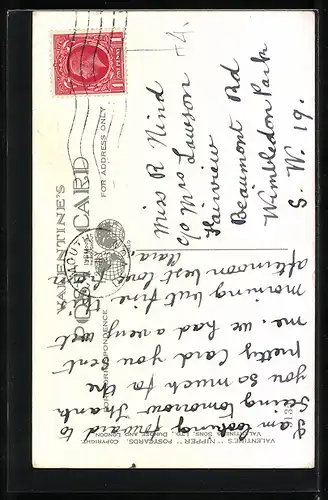 VALENTINE'S
POST CARD
FOR ADDRESS ONLY
CORRESPONDENCE
ONE PENNY
I am looking forward to
seeing tomorrow Thank
you so much for the
pretty Card you sent
me. we had a very wet
morning but fine
afternoon best love
Miss R Nind
c/o Mrs Lawson
Fairview
Beaumont Rd
Wimbledon Park
S. W. 19.
VALENTINE'S "NIPPER" POSTCARDS. COPYRIGHT.
VALENTINE & SONS, LTD., DUNDEE AND LONDON